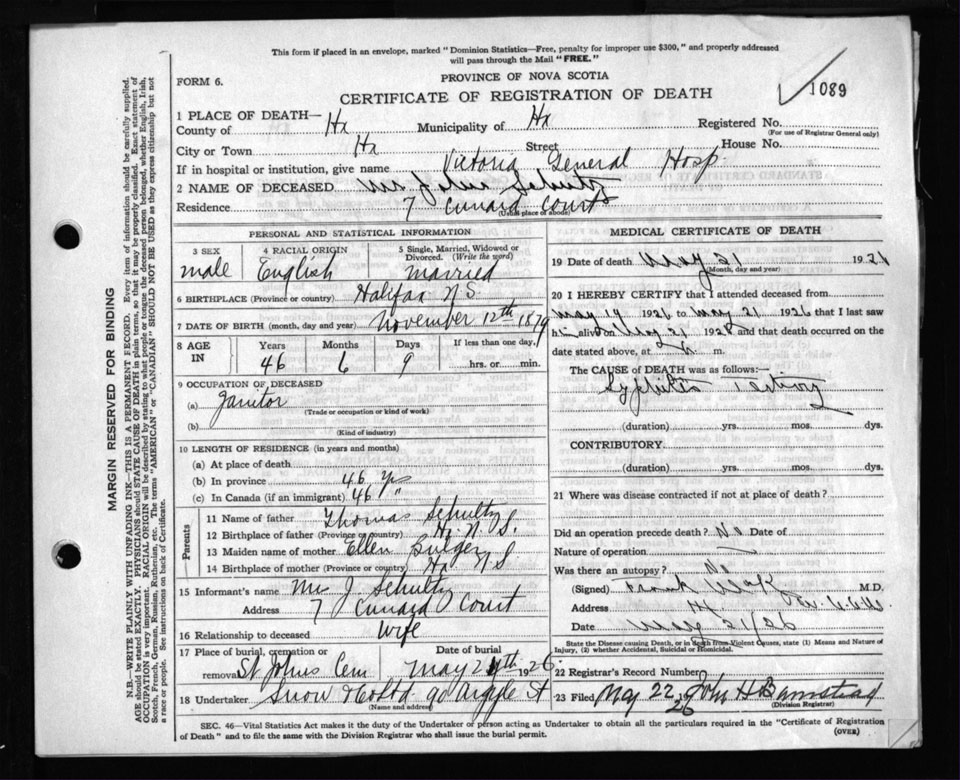 This form if placed in an envelope, marked "Dominion Statistics—Free, penalty for improper use $300," and properly addressed
will pass through the Mail "FREE."
FORM 6.
PROVINCE OF NOVA SCOTIA
1089
CERTIFICATE OF REGISTRATION OF DEATH
1 PLACE OF DEATH—
County of Hx Municipality of Hx Registered No.
(For use of Registrar General only)
City or Town Hx Street House No.
If in hospital or institution, give name Victoria General Hosp.
2 NAME OF DECEASED. Mr John Schultz
Residence 7 Cunard Court
(Usual place of abode)
PERSONAL AND STATISTICAL INFORMATION
3 SEX 4 RACIAL ORIGIN 5 Single, Married, Widowed or
Divorced. (Write the word)
male English married
6 BIRTHPLACE (Province or country) Halifax N S
7 DATE OF BIRTH (month, day and year) November 12th 1879
8 AGE IN Years Months Days If less than one day,
46 6 9 hrs. or min.
9 OCCUPATION OF DECEASED
(a) Janitor
(Trade or occupation or kind of work)
(b)
(Kind of industry)
10 LENGTH OF RESIDENCE (in years and months)
(a) At place of death
(b) In province 46 yrs
(c) In Canada (if an immigrant) 46 "
Parents
11 Name of father Thomas Schultz
12 Birthplace of father (Province or country) Hx N. S.
13 Maiden name of mother Ellen Bulger
14 Birthplace of mother (Province or country) Hx N S
15 Informant's name Mrs J. Schultz
Address 7 Cunard Court
16 Relationship to deceased Wife
17 Place of burial, cremation or Date of burial
removal St Johns Cem May 24th 1926
18 Undertaker Snow & Co Ltd 90 Argyle St
(Name and address)
MEDICAL CERTIFICATE OF DEATH
19 Date of death May 21 1926
(Month, day and year)
20 I HEREBY CERTIFY that I attended deceased from
May 19 1926 to May 21 1926 that I last saw
him alive on May 21 1926 and that death occurred on the
date stated above, at m.
The CAUSE of DEATH was as follows:—
(duration) yrs. mos. dys.
CONTRIBUTORY.
(duration) yrs. mos. dys.
21 Where was disease contracted if not at place of death?
Did an operation precede death? No Date of
Nature of operation
Was there an autopsy? No
(Signed) Frank M.D.
Address Hx
Date May 21/26
State the Disease causing Death, or in death from Violent Causes, state (1) Means and Nature of
Injury, (2) whether Accidental, Suicidal or Homicidal.
22 Registrar's Record Number
23 Filed May 22 1926 John H Barnstead
(Division Registrar)
SEC. 46—Vital Statistics Act makes it the duty of the Undertaker or person acting as Undertaker to obtain all the particulars required in the "Certificate of Registration
of Death" and to file the same with the Division Registrar who shall issue the burial permit.
(OVER)
MARGIN RESERVED FOR BINDING
N.B.—WRITE PLAINLY WITH UNFADING INK—THIS IS A PERMANENT RECORD. Every item of information should be carefully supplied.
AGE should be stated EXACTLY. PHYSICIANS should STATE CAUSE OF DEATH in plain terms, so that it may be properly classified. Exact statement of
OCCUPATION is very important. RACIAL ORIGIN will be described by stating to what people or tongue the deceased person belonged, whether English, Irish,
Scotch, French, German, Russian, Ruthenian, etc. The terms "AMERICAN" or "CANADIAN" SHOULD NOT BE USED as they express citizenship but not
a race or people. See instructions on back of Certificate.